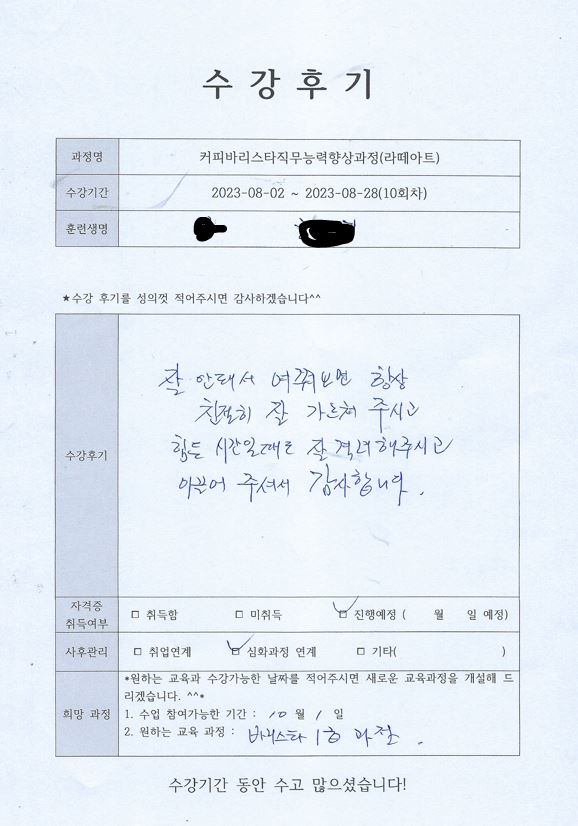 수강후기
과정명 커피바리스타직무능력향상과정(라떼아트)
수강기간 2023-08-02 ~ 2023-08-28(10회차)
훈련생명
★수강 후기를 성의껏 적어주시면 감사하겠습니다^^
수강후기
잘 안돼서 여쭤보면 항상
친절히 잘 가르쳐 주시고
힘든 시간일때도 잘 격려해주시고
이끌어 주셔서 감사합니다.
자격증
취득여부
□ 취득함 □ 미취득 □ 진행예정 ( 월 일 예정)
사후관리 □ 취업연계 □ 심화과정 연계 □ 기타( )
희망 과정
*원하는 교육과 수강가능한 날짜를 적어주시면 새로운 교육과정을 개설해 드
리겠습니다. ^^*
1. 수업 참여가능한 기간 : 10 월 1 일
2. 원하는 교육 과정 : 바리스타 1급 과정.
수강기간 동안 수고 많으셨습니다!